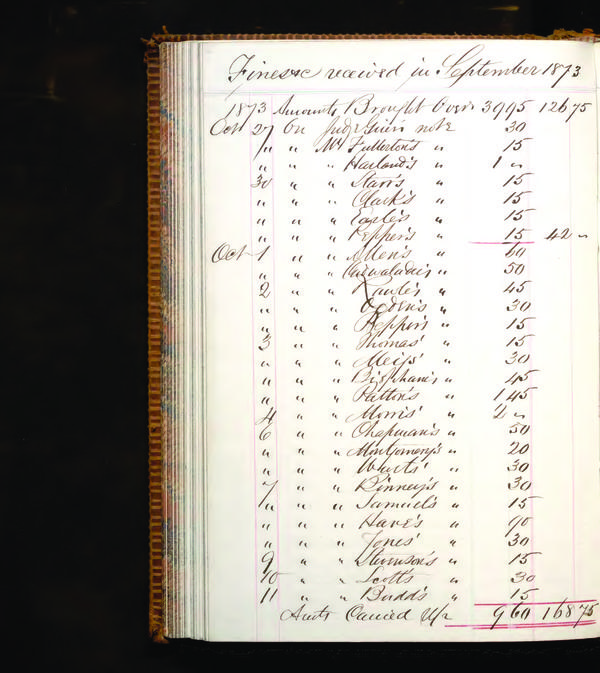 Fines &c received in September 1873
1873 Amounts Brought Over 3995 126 75
Oct 27 On Judge note 30
" " Mr Fullerton's " 15
" " " Harland's " 1 "
30 " " Starr's " 15
" " " Clark's " 15
" " " Earle's " 15
" " " Pepper's " 15 42 "
Oct 1 " " Allen's " 60
" " " Cadwalader's " 50
2 " " Rawle's " 45
" " " Ogden's " 30
" " " Pepper's " 15
3 " " Thomas' " 15
" " " Meigs' " 30
" " " Bispham's " 45
" " " Patton's " 1 45
4 " " Morris' " 2 "
6 " " Chapman's " 50
" " " Montgomery's " 20
" " " " 30
7 " " Kinney's " 30
" " " Samuel's " 15
" " " Hare's " 90
" " " Jones' " 30
9 " " Stevenson's " 15
10 " " Scott's " 30
11 " " Budd's " 15
Amts Carried 9 60 168 75